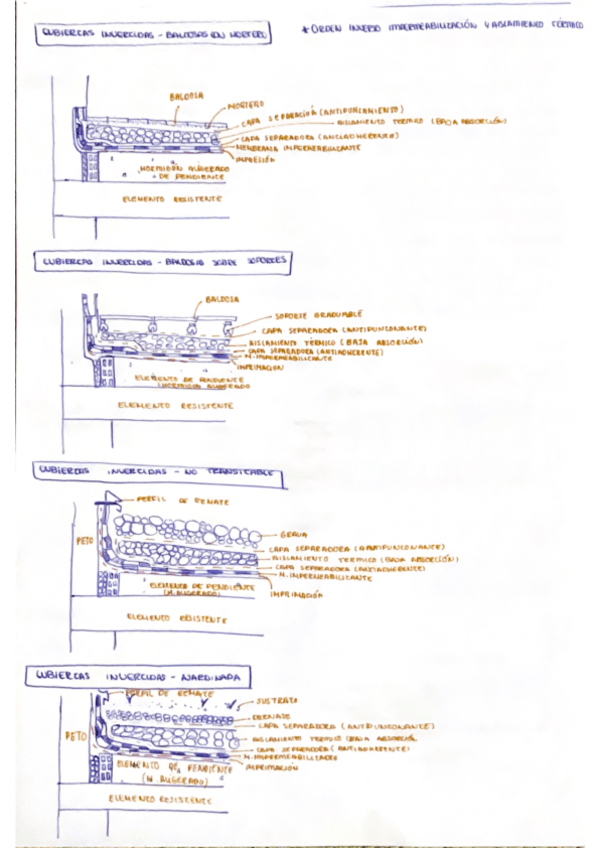 CUBIERTAS INVERTIDAS - BALDOSAS CON MORTERO
* ORDEN INVERSO IMPERMEABILIZACIÓN Y AISLAMIENTO TÉRMICO
BALDOSA
MORTERO
CAPA SEPARACIÓN (ANTIPUNZANTE)
AISLAMIENTO TERMICO (BAJA ABSORCIÓN)
CAPA SEPARADORA (ANTIADHERENTE)
MEMBRANA IMPERMEABILIZANTE
HORMIGON ALIGERADO
DE PENDIENTE
ELEMENTO RESISTENTE
CUBIERTAS INVERTIDAS - BALDOSAS SOBRE SOPORTES
BALDOSA
SOPORTE GRADUABLE
CAPA SEPARADORA (ANTIPUNZONANTE)
AISLAMIENTO TÉRMICO (BAJA ABSORCIÓN)
CAPA SEPARADORA (ANTIADHERENTE)
M. IMPERMEABILIZANTE
IMPRIMACION
ELEMENTO DE PENDIENTE
(HORMIGON ALIGERADO
ELEMENTO RESISTENTE
CUBIERTAS INVERTIDAS - NO TRANSITABLE
PERFIL DE REMATE
PETO
GRAVA
CAPA SEPARADORA (ANTIPUNZONANTE)
AISLAMIENTO TERMICO (BAJA ABSORCIÓN)
CAPA SEPARADORA (ANTIADHERENTE)
M. IMPERMEABILIZANTE
ELEMENTO DE PENDIENTE
(H. ALIGERADO)
IMPRIMACIÓN
ELEMENTO RESISTENTE
CUBIERTAS INVERTIDAS - AJARDINADA
PERFIL DE REMATE
SUSTRATO
DRENAJE
CAPA SEPARADORA (ANTIPUNZONANTE)
PETO
AISLAMIENTO TERMICO (BAJA ABSORCIÓN
CAPA SEPARADORA (ANTIADHERENTE)
M. IMPERMEABILIZANTE
IMPRIMACIÓN
ELEMENTO DE PENDIENTE
(H. ALIGERADO)
ELEMENTO RESISTENTE